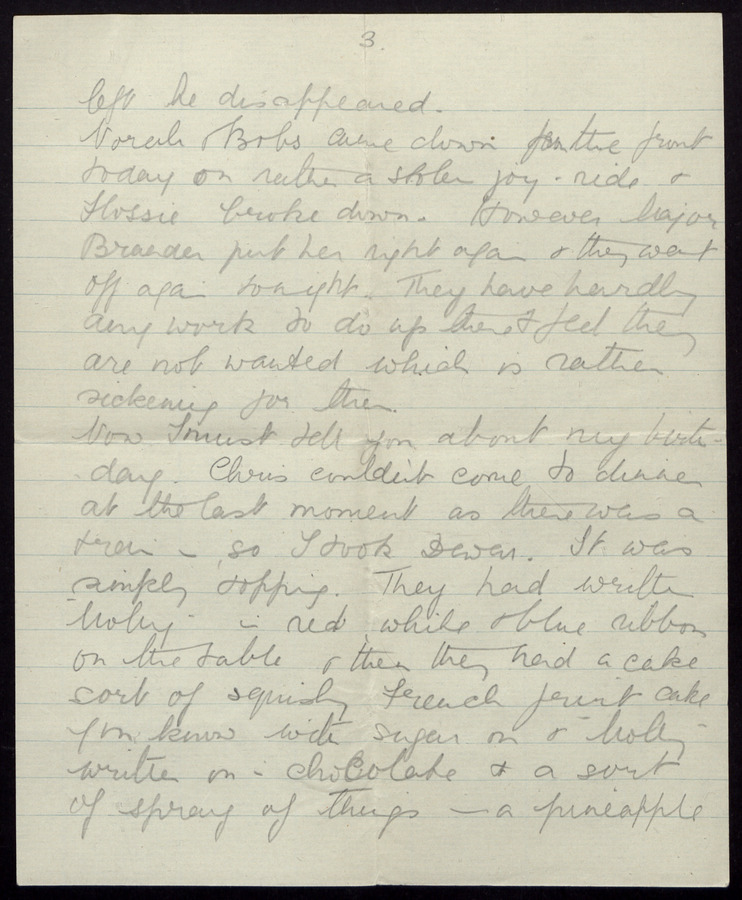 3.
left he disappeared.
Norah & Bobs came down from the front
today on rather a stolen joy-ride &
Flossie broke down. However Major
put her right again & they went
off again tonight. They have hardly
any work to do up there & feel they
are not wanted which is rather
sickening for them.
Now I must tell you about my birth-
-day. Chris couldn't come to dinner
at the last moment as there was a
train - so I took Dewar. It was
simply topping. They had written
"Molly" in red, white & blue ribbon
on the table & then they had a cake
sort of squishy French fruit cake
you know with sugar on & "Molly"
written on in chocolate & a sort
of spray of things — a pineapple